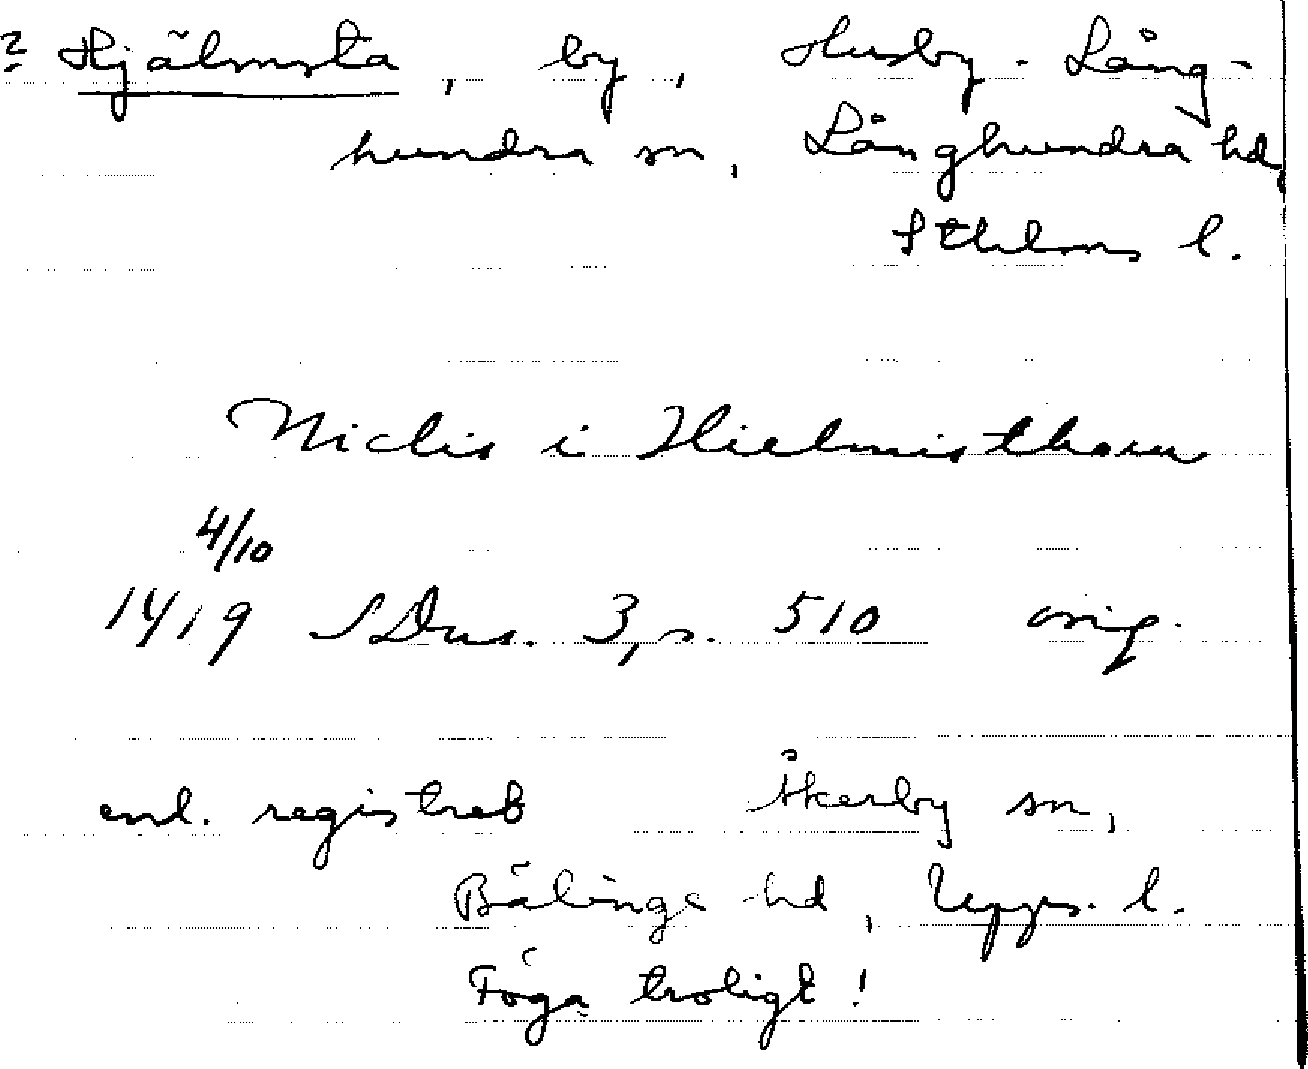 ? Hjälmsta, by, Husby-Lång-
hundra sn, Långhundra hd,
Sthlms l.
Niclis i Hielmisthom
4/10
1419 SDns. 3, s. 510 orig.
enl. registret Åkerby sn,
Bälinge hd, Upps. l.
Föga troligt!